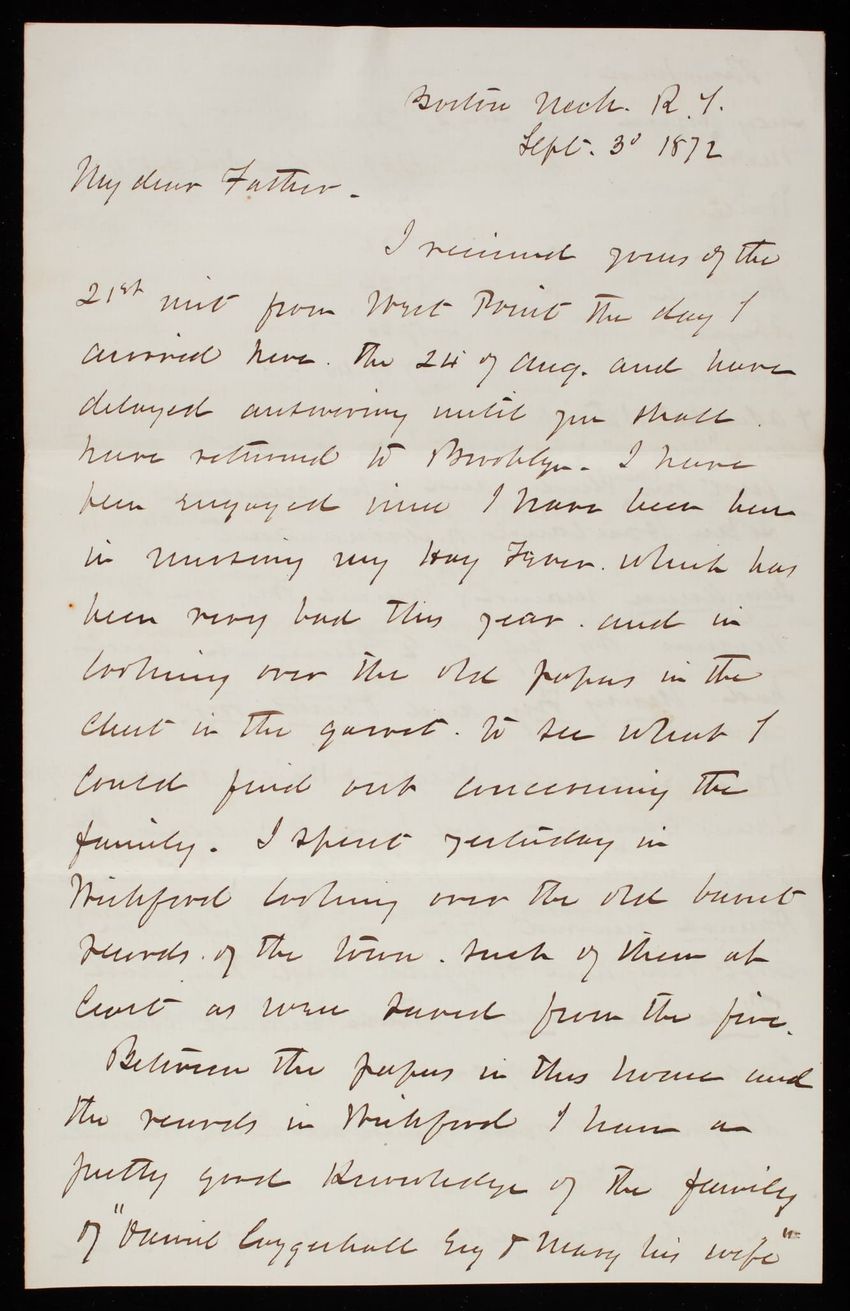 Boston Neck. R. I.
Sept. 3d 1872
My dear Father.
I received yours of the
21st inst from West Point the day I
arrived here. the 24 of Aug. and have
delayed answering until you shall
have returned to Brooklyn. I have
been engaged since I have been here
in nursing my Hay Fever. which has
been very bad this year. and in
looking over the old papers in the
chest in the garret. to see what I
could find out concerning the
family. I spent yesterday in
Wickford looking over the old burnt
records. of the town. such of them at
least as were saved from the fire.
Between the papers in this house and
the records in Wickford I have a
pretty good knowledge of the family
of "Daniel Coggeshall Esq & Mary his wife"